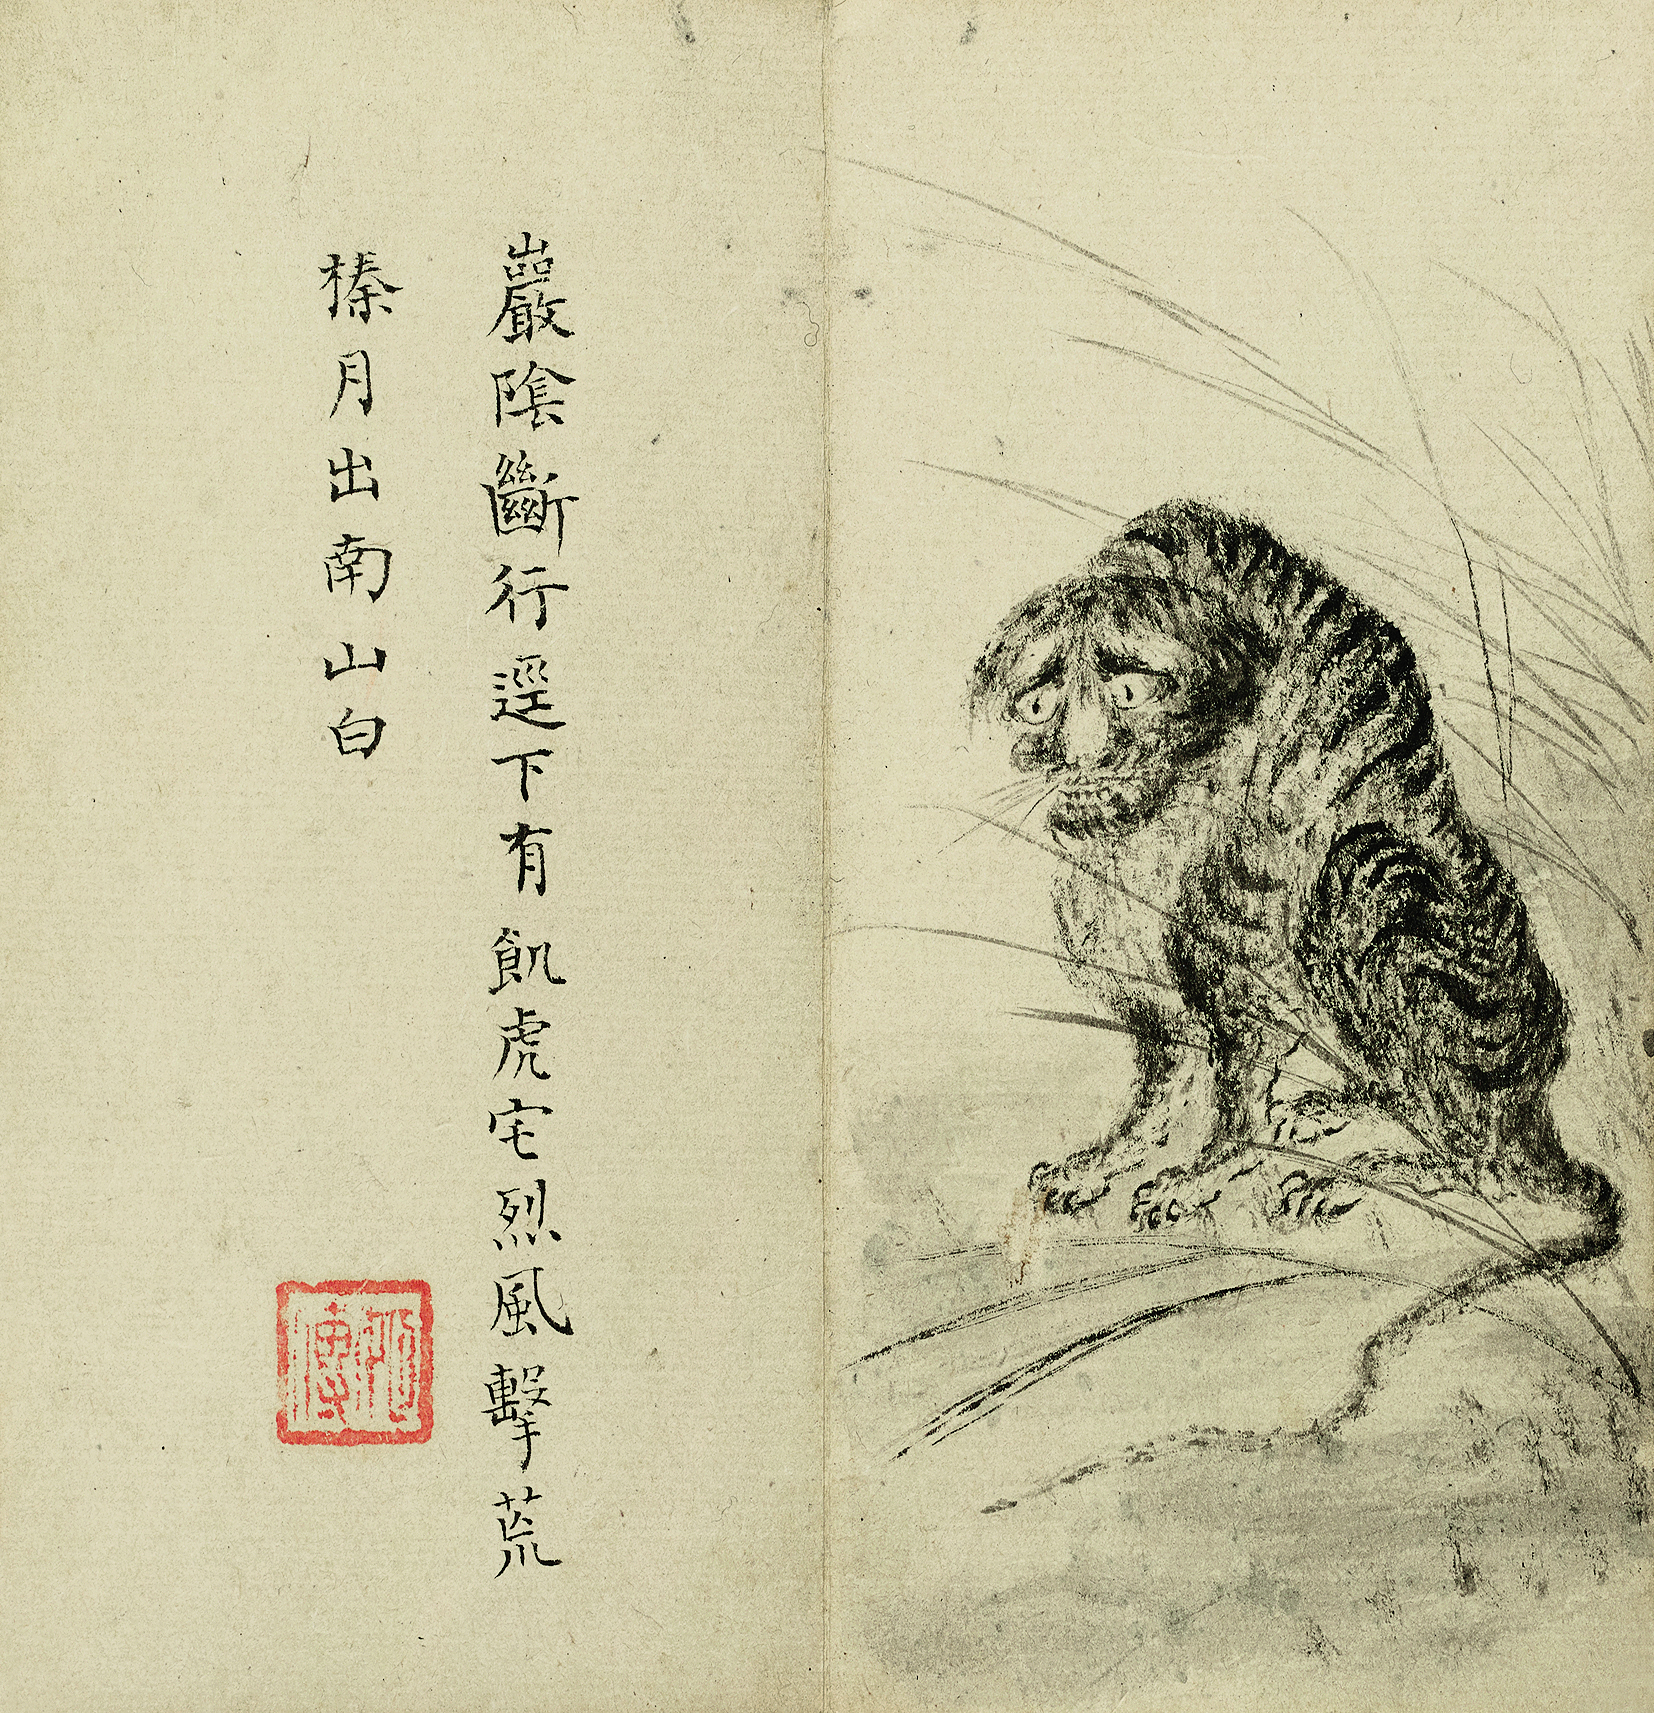 巖陰斷行逕下有飢虎宅烈風擊荒
榛月出南山白